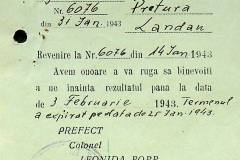 Nr. 6076 Pretura
din 31 Jan. 1943 Landau
Revenire la Nr. 6076 din 14 Jan 1943
Avem onoare a va ruga sa binevoiti
a ne inainta rezultatul pana la data
de 3 Februarie 1943. Termenul
a expirat pe data de 25 Jan. 1943.
PREFECT
Colonel
LEONIDA POPP